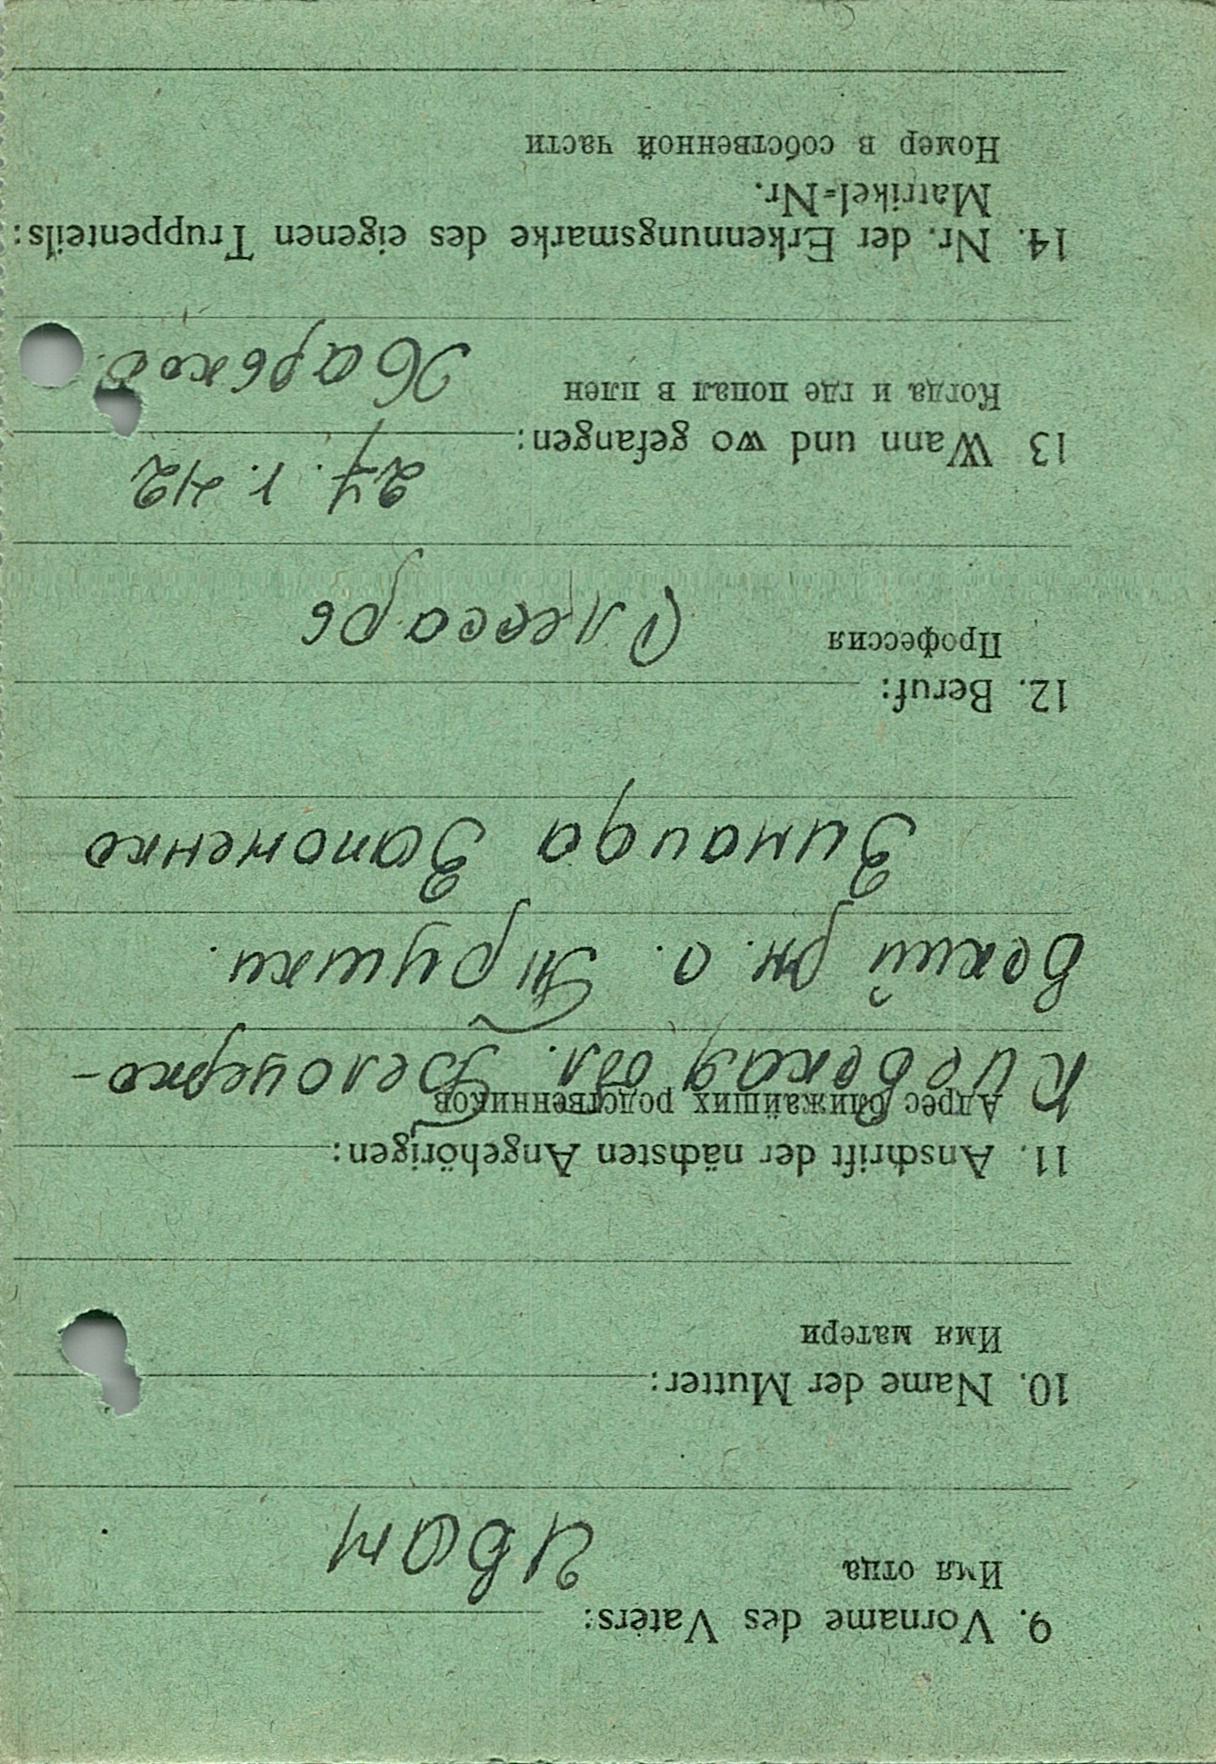 9. Vorname des Vaters:
Имя отца
Иван
10. Name der Mutter:
Имя матери
11. Anschrift der nächsten Angehörigen:
Адрес ближайших родственников
Киевская обл. Белоцерко-
вский рн. с. Трушки.
Зинаида Запоненко
12. Beruf:
Профессия
Слесарь
13 Wann und wo gefangen:
27. 1. 42
Когда и где попал в плен
Харьков.
14. Nr. der Erkennungsmarke des eigenen Truppenteils:
Matrikel-Nr.
Номер в собственной части